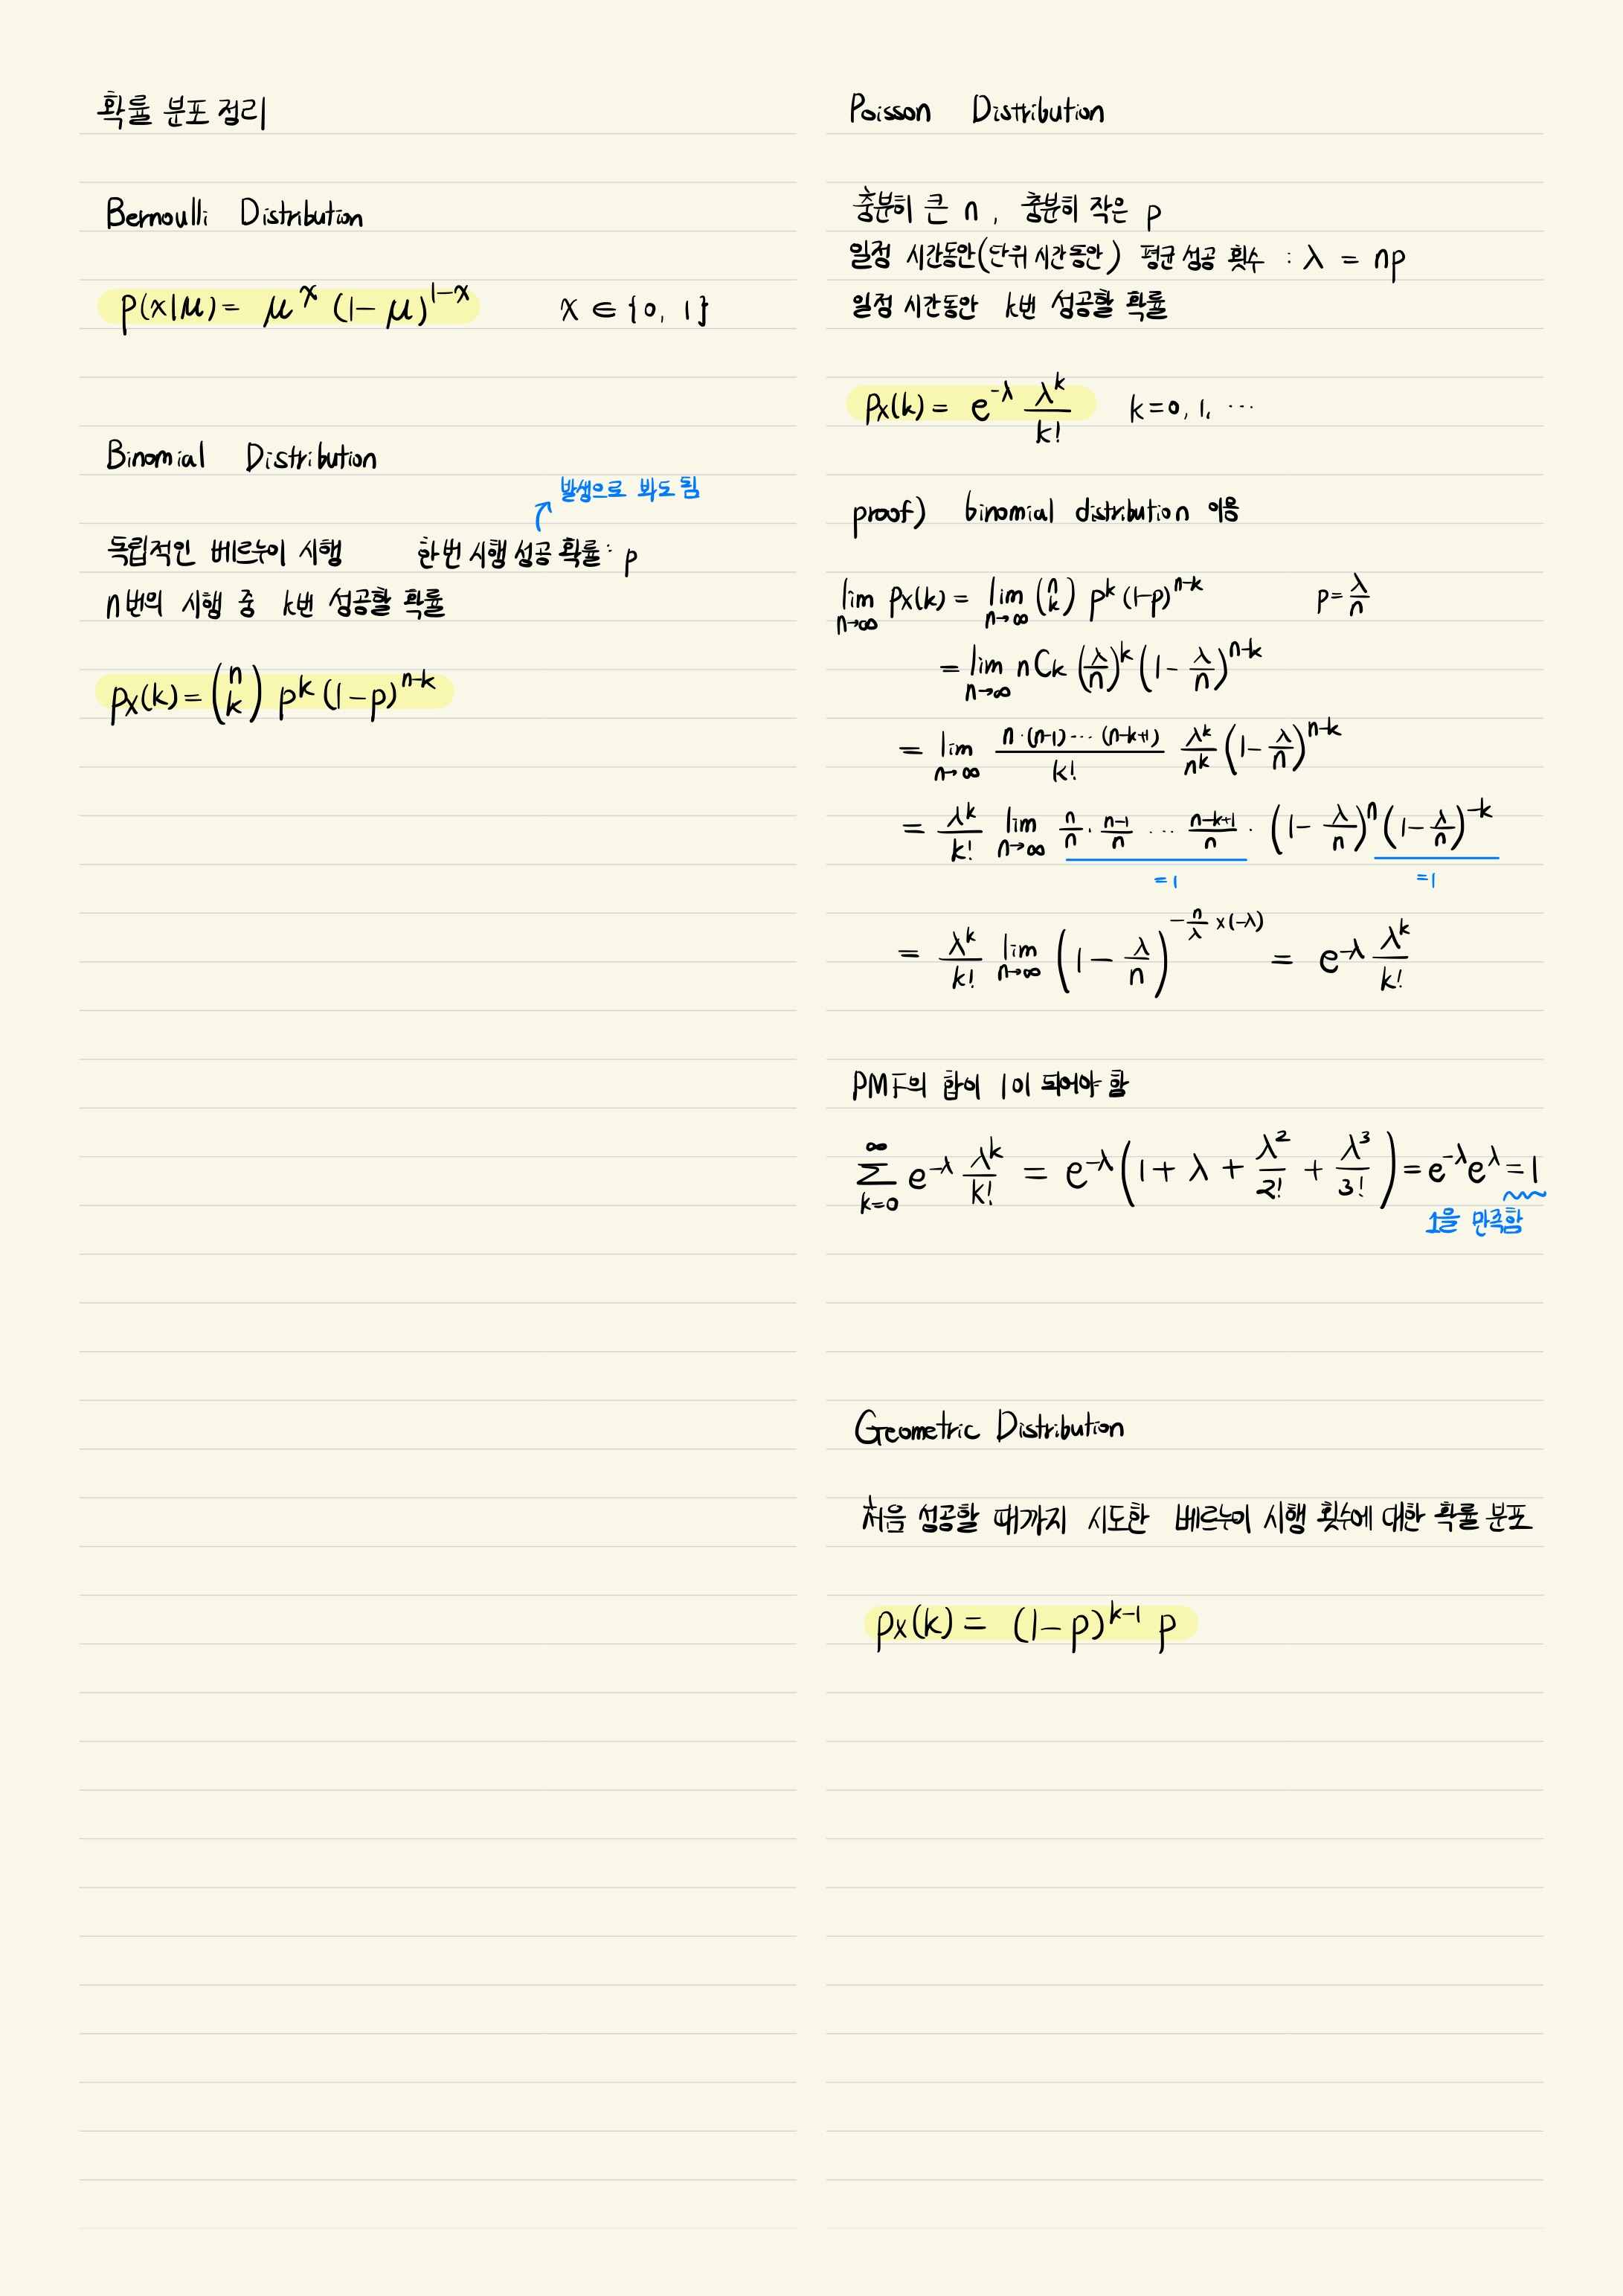 확률 분포 정리
Bernoulli Distribution
p(x|μ) = μ^x (1-μ)^{1-x}    x ∈ {0, 1}
Binomial Distribution
발생으로 봐도 됨
독립적인 베르누이 시행    한번 시행 성공 확률 : p
n번의 시행 중 k번 성공할 확률
p_X(k) = (n k) p^k (1-p)^{n-k}
Poisson Distribution
충분히 큰 n, 충분히 작은 p
일정 시간동안(단위 시간동안) 평균 성공 횟수 : λ = np
일정 시간동안 k번 성공할 확률
p_X(k) = e^{-λ} λ^k/k!    k=0, 1, ⋯
proof) binomial distribution 이용
lim_{n→∞} p_X(k) = lim_{n→∞} (n k) p^k (1-p)^{n-k}    p = λ/n
= lim_{n→∞} nCk (λ/n)^k (1 - λ/n)^{n-k}
= lim_{n→∞} n·(n-1)⋯(n-k+1)/k! λ^k/n^k (1 - λ/n)^{n-k}
= λ^k/k! lim_{n→∞} n/n · n-1/n ⋯ n-k+1/n · (1 - λ/n)^n (1 - λ/n)^{-k}
=1    =1
= λ^k/k! lim_{n→∞} (1 - λ/n)^{-n/λ ×(-λ)} = e^{-λ} λ^k/k!
PMF의 합이 1이 되어야 함
∑_{k=0}^{∞} e^{-λ} λ^k/k! = e^{-λ}(1 + λ + λ^2/2! + λ^3/3!) = e^{-λ}e^λ = 1
1을 만족함
Geometric Distribution
처음 성공할 때까지 시도한 베르누이 시행 횟수에 대한 확률 분포
p_X(k) = (1-p)^{k-1} p